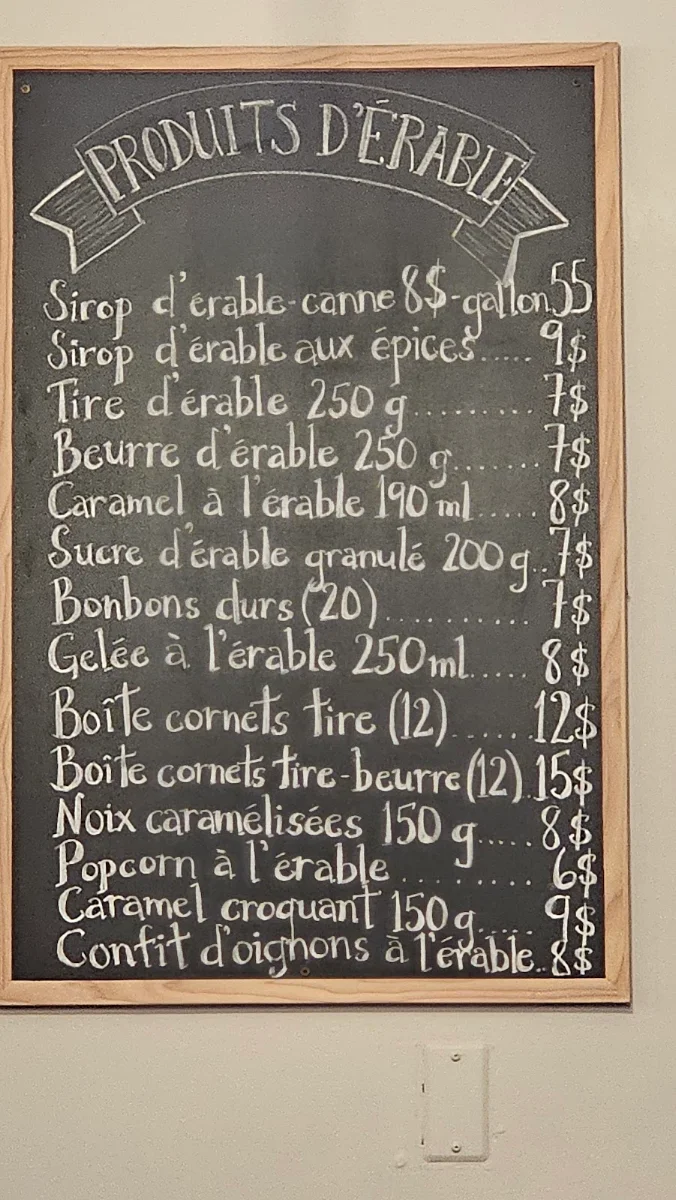 PRODUITS D'ÉRABLE
Sirop d'érable-canne 8$-gallon 55
Sirop d'érable aux épices..... 9$
Tire d'érable 250 g......... 7$
Beurre d'érable 250 g....... 7$
Caramel à l'érable 190 ml..... 8$
Sucre d'érable granulé 200 g.. 7$
Bonbons durs (20)........... 7$
Gelée à l'érable 250 ml..... 8$
Boîte cornets tire (12)...... 12$
Boîte cornets tire-beurre (12). 15$
Noix caramélisées 150 g..... 8$
Popcorn à l'érable......... 6$
Caramel croquant 150 g..... 9$
Confit d'oignons à l'érable.. 8$